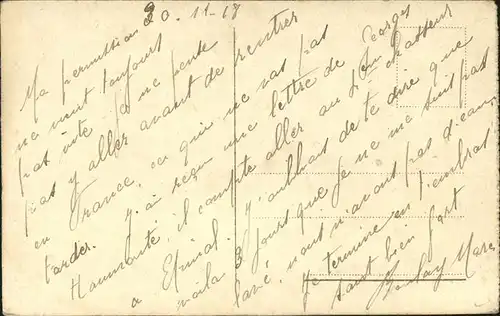 20-11-18
Ma permission
ne vient toujours
pas vite. Je ne pense
pas y aller avant de rentrer
en France, ce qui ne va pas
tarder. J'ai reçu une lettre de Georges
Haumonté, il compte aller au 21ème chasseurs
a Epinal. J'oubliais de te dire que
voila 3 jours que je ne me suis pas
lavé, nous n'avons pas d'eau.
Je termine en t'embras
sant bien fort
Marc